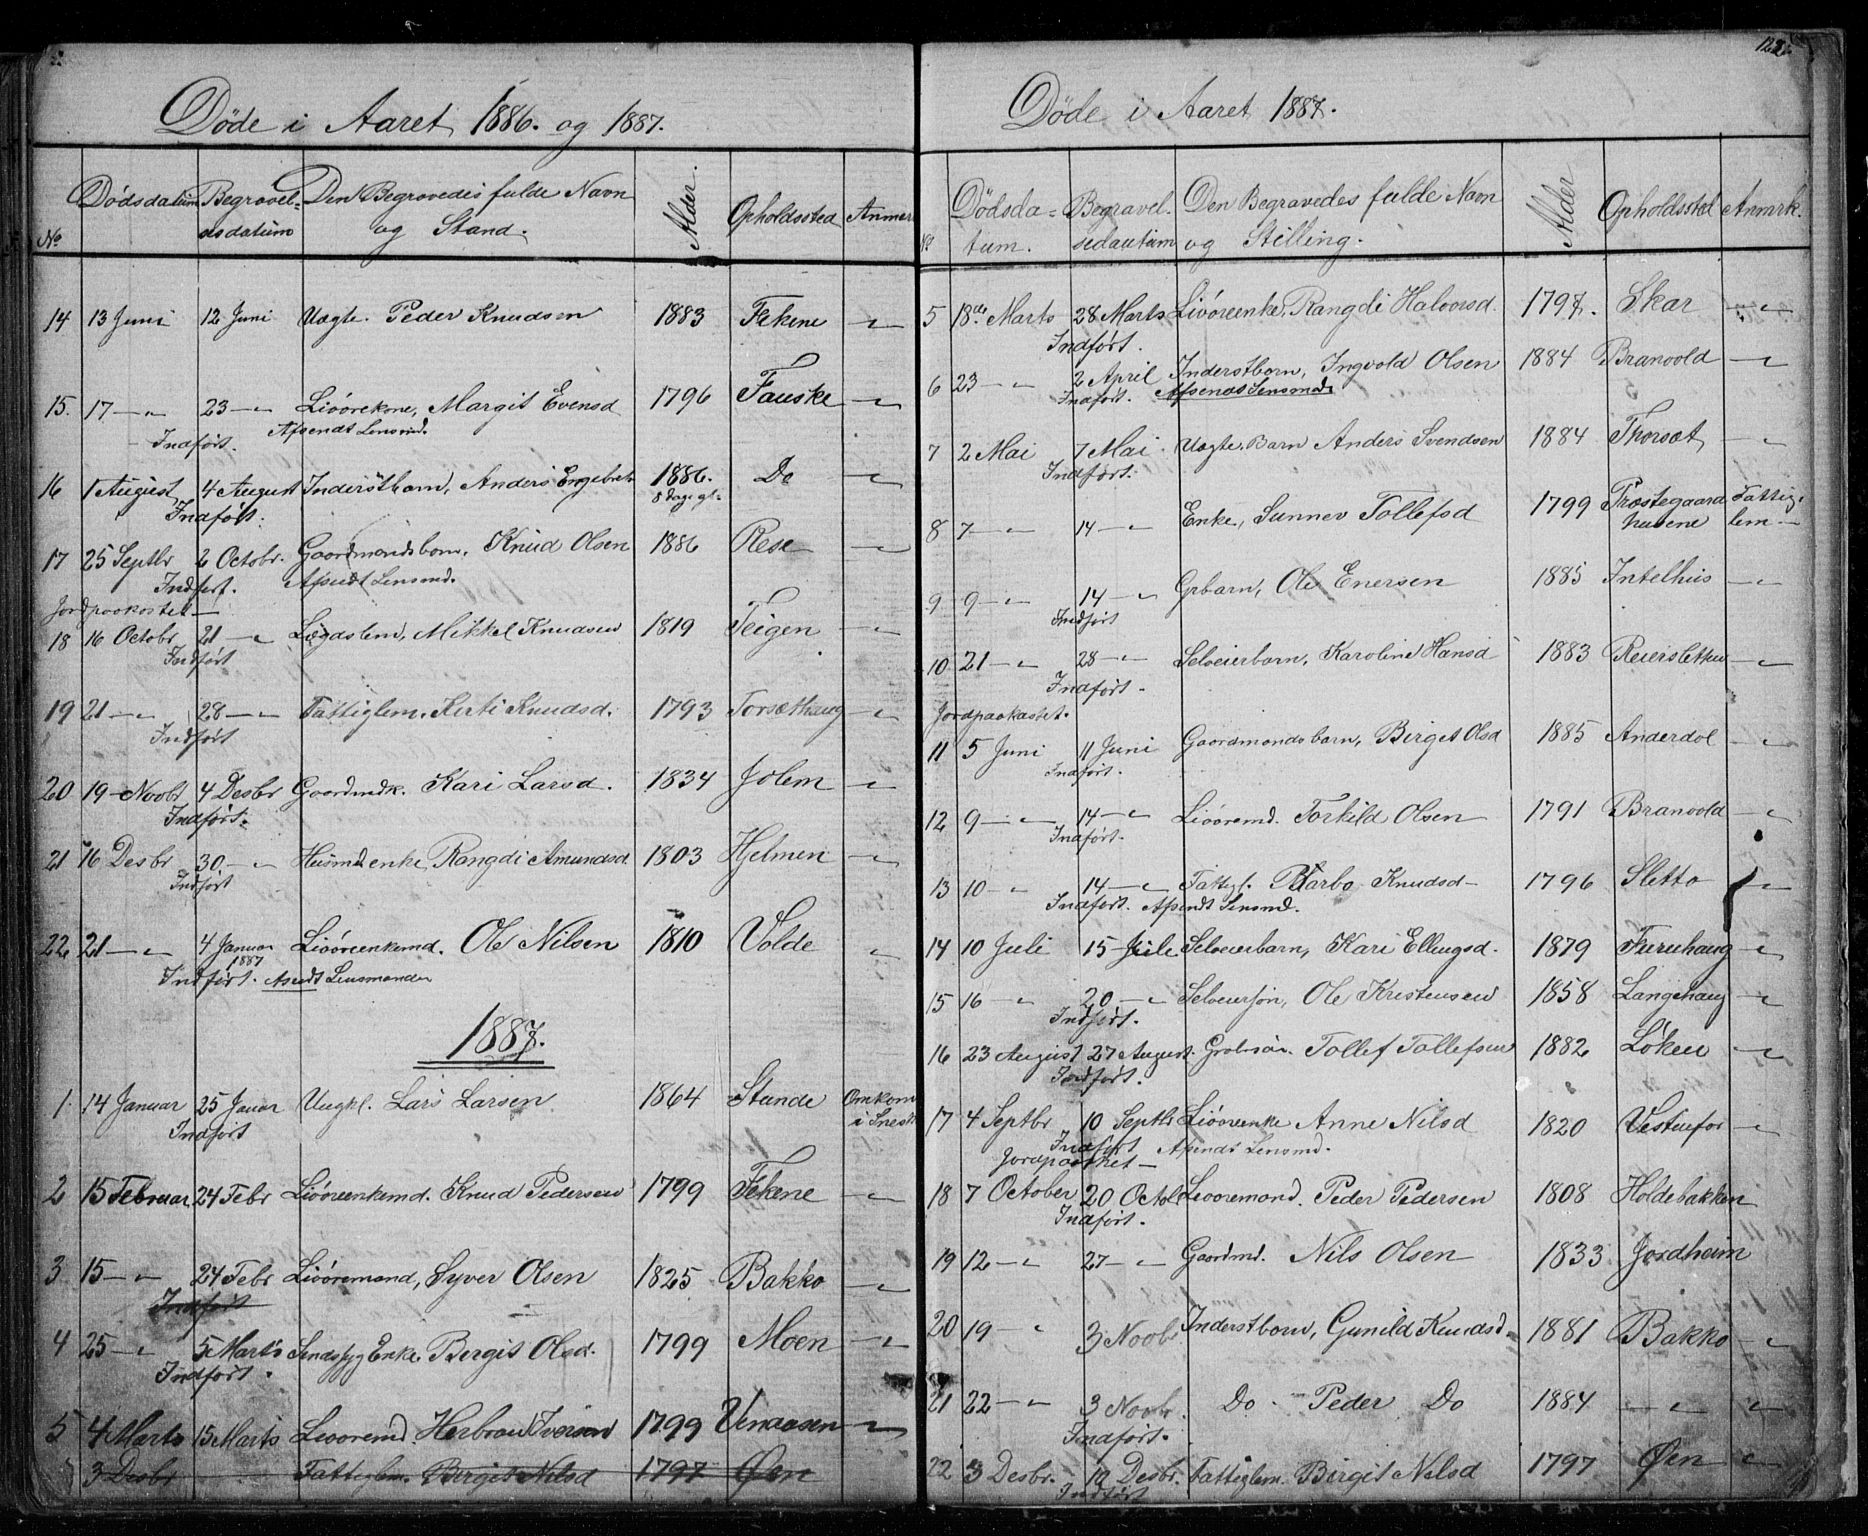 Døde i Aaret 1886. og 1887.
No Dødsdatum Begravelsesdatum Den Begravedes fulde Navn og Stand. Alder. Opholdssted Anmer
14 13 Juni 12 Juni Uægte. Peder Knudsen 1883 Ekene —"—
15. 17 —"— 23 —"— Livørekone, Margit Evensd 1796 Fauske —"—
Indført. Afsendt Lensmd.
16 1 August 4 August Inderstbarn, Anders Engebrets 1886. Do —"—
Indført. 8 dage gl.
17 25 Septbr 2 Octobr. Gaardmandsbarn. Knud Olsen 1886 Rese —"—
Indført. Afsendt Lensmd.
Jordpaakastet —
18 16 Octobr 21 —"— Lægdslem, Mikkel Knudsen 1819 Teigen —"—
Indført
19 21 —"— 28 —"— Fattiglem. Kirti Knudsd. 1793 Torsæthaug —"—
Indført
20 19 Novbr 4 Desbr Gaardmdk. Kari Larsd. 1834 Jølem —"—
Indført.
21 16 Desbr 30 —"— Husmdenke Rangdi Amundsd 1803 Hjelmen —"—
Indført
22 21 —"— 4 Januar Livøreenkemd. Ole Nilsen 1810 Volde "
1887
Indført. Afsendt Lensmanden
1887.
1. 14 Januar 25 Januar Ungkl. Lars Larsen 1864 Stande Omkom
Indført i Snesk
2 15 Februar 24 Febr Livøreenkemd. Knud Pedersen 1799 Ekene —"—
3 15 —"— 24 Febr Livøremand, Syver Olsen 1825 Bakko —"—
Indført
4 25 —"— 5 Marts Sindssyg Enke Bergit Olsd. 1799 Moen —"—
Indført.
5 4 Marts 15 Marts Livøremd. Herbrand Iversen 1799 Venaasen —"—
3 Desbr Fattiglem. Birgit Nilsd 1797 Øen
122
Døde i Aaret 1887.
No Dødsdatum. Begravelsedautum Den Begravedes fulde Navn og Stilling. Alder Opholdssted Anmrk.
5 18de Marts 28 Marts Livøreenke, Rangdi Halvorsd. 1797. Skar —"—
Indført.
6 23 —"— 2 April Inderstbarn, Ingvold Olsen 1884 Branvold —"—
Indført. Afsendt Lensmd
7 2 Mai 7 Mai Uægte Barn Anders Svendsen 1884 Thorsæt —"—
Indført.
8 7 —"— 14 —"— Enke, Sunnev Tollefsd 1799 Præstegaard Fattig-
husene lem —
9 9 —"— 14 —"— Gpbarn, Ole Enersen 1885 Intelhus —"—
Indført
10 21 —"— 28 —"— Selveierbarn, Karoline Hansd 1883 Reiersletten —"—
Indført.
Jordpaakastet.
11 5 Juni 11 Juni Gaardmandsbarn, Birgit Olsd 1885 Anderdol —"—
Indført.
12 9 —"— 14 —"— Livøremd. Torkild Olsen 1791 Branvold —"—
Indført.
13 10 —"— 14 —"— Fattigl. Barbo Knudsd 1796 Sletto —"—
Indført. Afsendt Lensmd.
14 10 Juli 15 Juli Selveierbarn, Kari Ellingsd. 1879 Furuhaug —"—
15 16 " 20 —"— Selveiersøn, Ole Kristensen 1858 Langehaug —"—
Indført.
16 23 August 27 August. Tollef Tollefsen 1882 Løken —"—
Indført.
17 4 Septbr 10 Septbr Livøreenke Anne Nilsd 1820 Vestenfor —"—
Indført Afsendt Lensmd.
Jordpaakstet —
18 7 October 20 Octob Livøremand. Peder Pedersen 1808 Holdebakken
Indført.
19 12 —"— 27 —"— Gaardmd. Nils Olsen 1833 Jordheim
20 19 —"— 3 Novbr Inderstbarn, Gunild Knudsd. 1881 Bakko —"—
21 22 —"— 3 Novbr. Do. Peder Do 1884 —"— "
Indført.
22 3 Desbr. 10 Desbr. Fattiglem. Birgit Nilsd 1797 Øen —"—
Indført